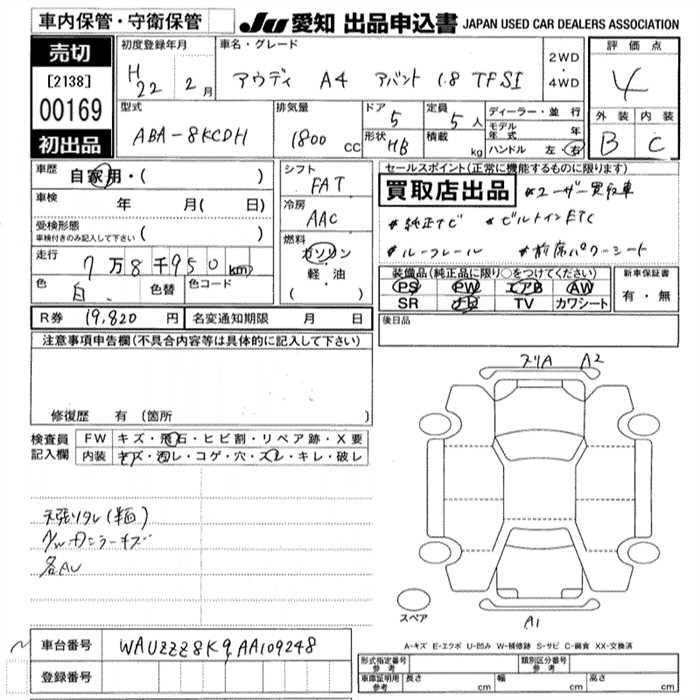 車内保管・守衛保管
JU 愛知 出品申込書 JAPAN USED CAR DEALERS ASSOCIATION
売切
[2138]
00169
初出品
初度登録年月 H22 2月
車名・グレード アウディ A4 アバント 1.8 TFSI
2WD・4WD
評価点 4
外装 B 内装 C
型式 ABA-8KCDH
排気量 1800 CC
ドア 5
形状 HB
定員 5人
積載 kg
ディーラー・並行
モデル年式 年
ハンドル 左・右
車歴 自家用・( )
車検 年 月( 日)
受検形態 車検付きのみ記入して下さい ( )
走行 7万8千950 km
色 白 色替 色コード
シフト FAT
冷房 AAC
燃料 ガソリン・軽・油・( )
セールスポイント(正常に機能するものに限ります)
買取店出品 *ユーザー買取車
*純正ナビ *ビルトインETC
*ルーフレール *前席パワーシート
装備品(純正品に限り○をつけてください)
PS PW エアB AW
SR ナビ TV カワシート
新車保証書
有・無
R券 19,820 円 名変通知期限 月 日
後日品
注意事項申告欄(不具合内容等は具体的に記入して下さい)
修復歴 有 (箇所 )
検査員記入欄
FW キズ・飛石・ヒビ割・リペア跡・X要
内装 キズ・汚レ・コゲ・穴・スレ・キレ・破レ
天張りタレ(全面)
各AU
スリA A2
A1
スペア
A-キズ E-エクボ U-凹み W-補修跡 S-サビ C-腐食 XX-交換済
車台番号 WAUZZZ8K9AA109248
登録番号
形式指定番号 参考 類別区分番号 参考
車庫証明用 参考 長さ cm 幅 cm 高さ cm